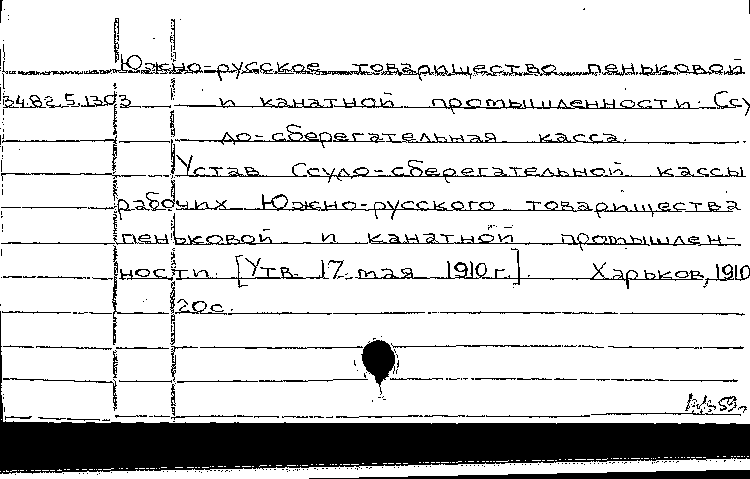 Южно-русское товарищество пеньковой
34.82.5.1303 и канатной промышленности. Ссу
до-сберегательная касса.
Устав Ссудо-сберегательной кассы
рабочих Южно-русского товарищества
пеньковой и канатной промышлен-
ности. [Утв. 17 мая 1910 г.]. Харьков, 1910
20с.